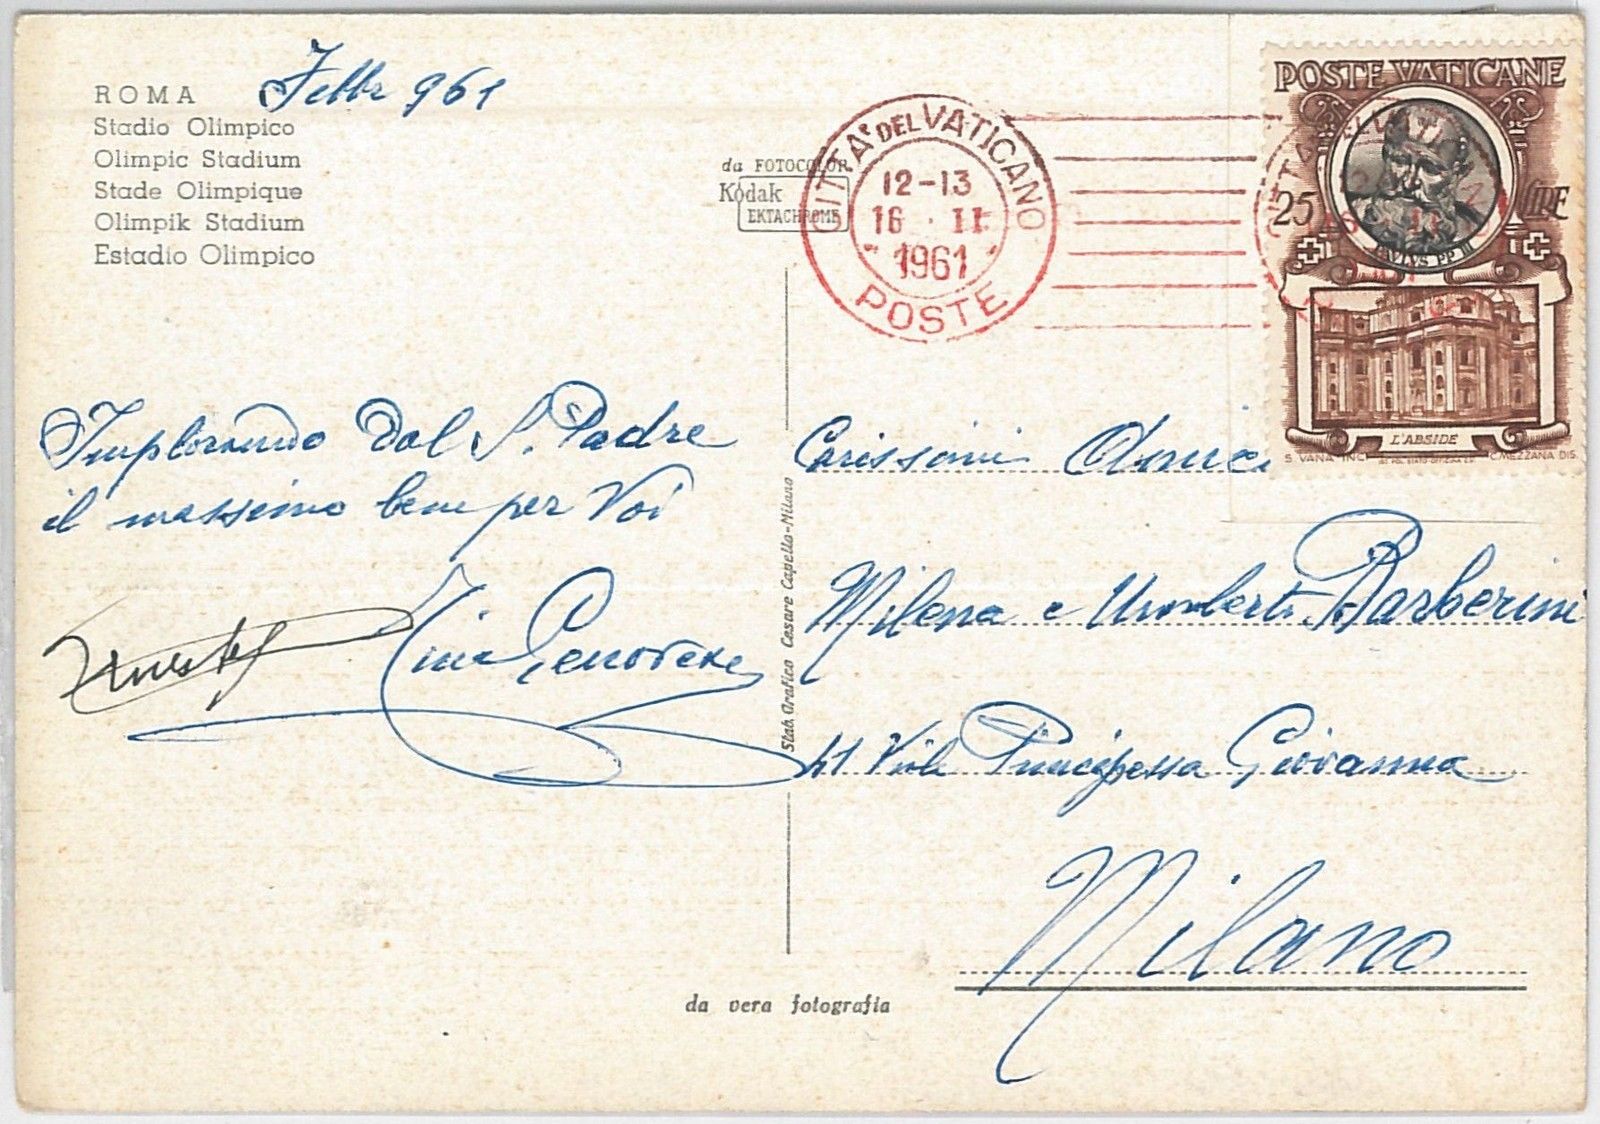 ROMA Febbr 961
Stadio Olimpico
Olimpic Stadium
Stade Olimpique
Olimpik Stadium
Estadio Olimpico
da FOTOCOLOR
Kodak
EKTACHROME
CITTA' DEL VATICANO
12-13
16 · II
1961
POSTE
POSTE VATICANE
25 LIRE
PAVLVS PP III
L'ABSIDE
S. VANA INC. C. MEZZANA DIS.
Implorando dal S. Padre
il massimo bene per Voi
Genovese
Stab. Grafico Cesare Capello-Milano
Carissimi Amici
Milena e Umberto Barberini
41 Viale Principessa Giovanna
Milano
da vera fotografia